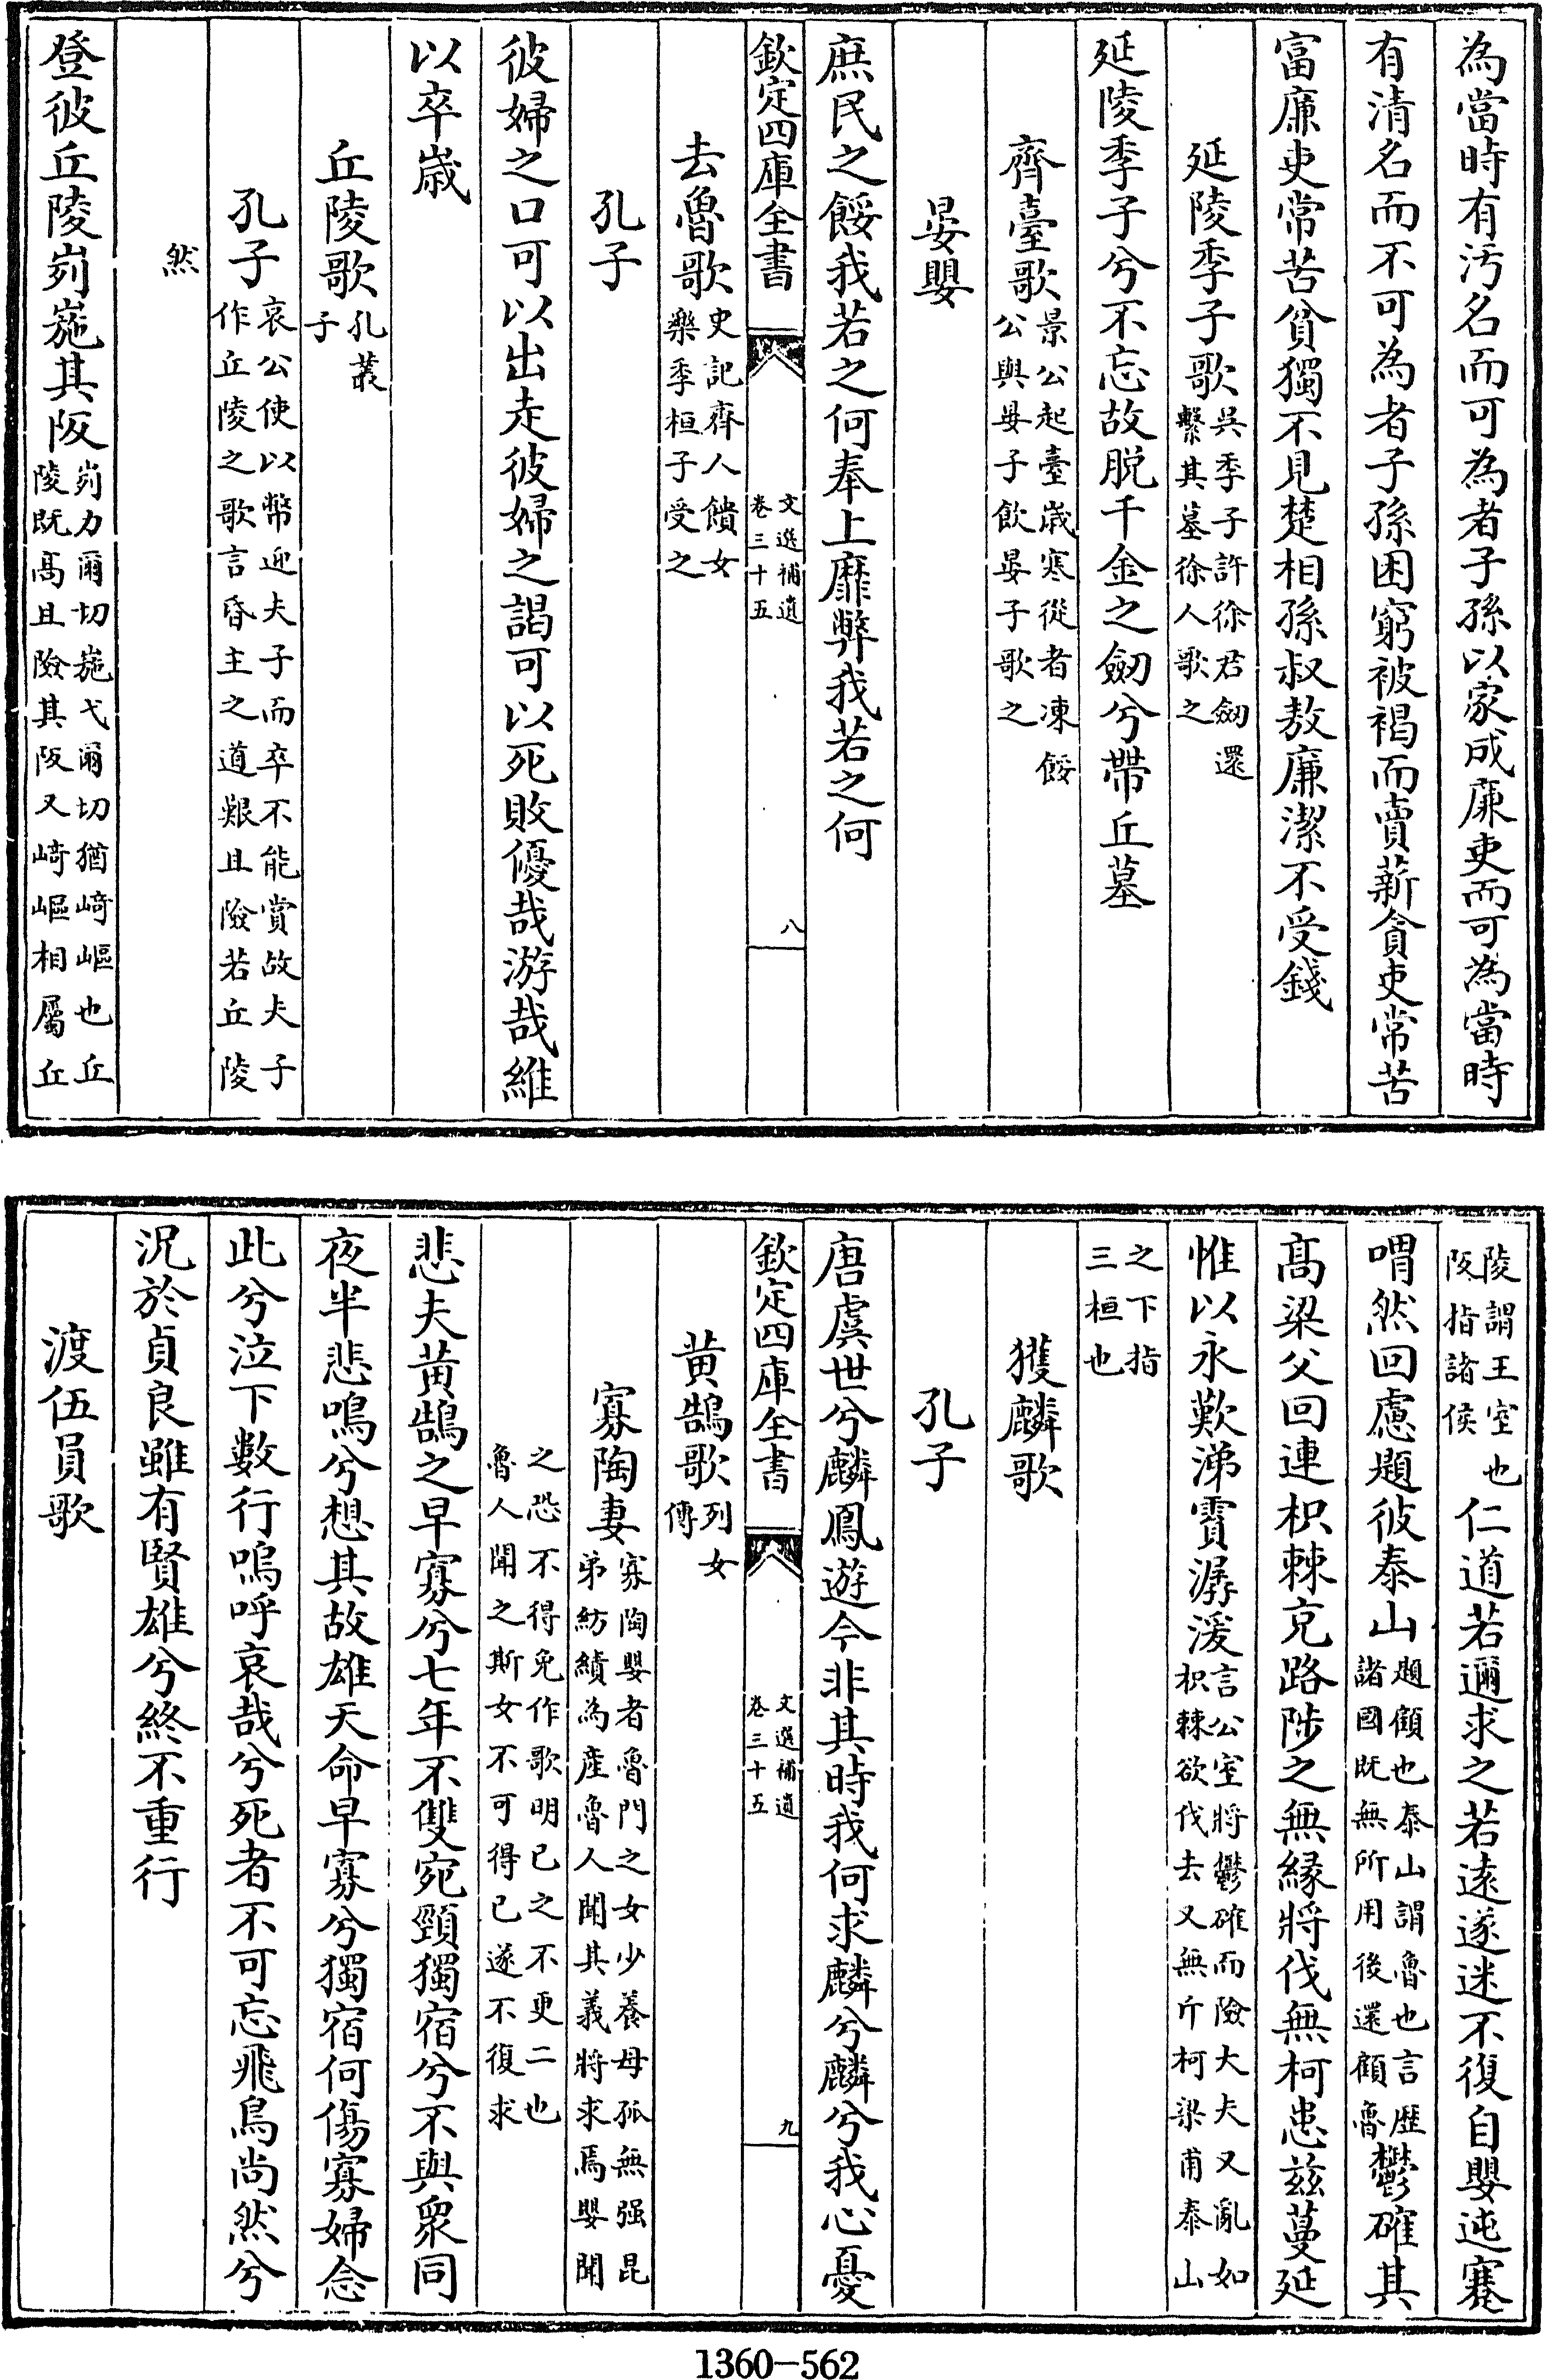 為當時有汚名而可為者子孫以家成廉吏而可為當時
有清名而不可為者子孫困窮被褐而賣薪貪吏常苦
富廉吏常苦貧獨不見楚相孫叔敖廉潔不受錢
延陵季子歌吳季子許徐君劒還
繫其墓徐人歌之
延陵季子兮不忘故脱千金之劒兮帶丘墓
齊臺歌景公起臺歳寒從者凍餒
公與晏子飲晏子歌之
晏嬰
庶民之餒我若之何奉上靡弊我若之何
欽定四庫全書
文選補遺
卷三十五
八
去魯歌史記齊人饋女
樂季桓子受之
孔子
彼婦之口可以出走彼婦之謁可以死敗優哉游哉維
以卒歳
丘陵歌孔叢
子
孔子哀公使以幣迎夫子而卒不能賞故夫子
作丘陵之歌言昏主之道艱且險若丘陵
然
登彼丘陵峛崺其阪峛力爾切崺弋爾切猶﨑嶇也丘
陵既高且險其阪又﨑嶇相屬丘
陵謂王室也
阪指諸侯
仁道若邇求之若逺遂迷不復自嬰迍蹇
喟然回慮題彼泰山題顧也泰山謂魯也言歴
諸國既無所用後還顧魯
鬱確其
髙梁父回連枳棘充路陟之無縁將伐無柯患兹蔓延
惟以永歎涕霣潺湲言公室將鬱確而險大夫又亂如
枳棘欲伐去又無斤柯梁甫泰山
之下指
三桓也
獲麟歌
孔子
唐虞世兮麟鳳遊今非其時我何求麟兮麟兮我心憂
欽定四庫全書
文選補遺
卷三十五
九
黄鵠歌列女
傳
寡陶妻寡陶嬰者魯門之女少養母孤無强昆
弟紡績為産魯人聞其義將求焉嬰聞
之恐不得免作歌明已之不更二也
魯人聞之斯女不可得已遂不復求
悲夫黄鵠之早寡兮七年不雙宛頸獨宿兮不與衆同
夜半悲鳴兮想其故雄天命早寡兮獨宿何傷寡婦念
此兮泣下數行嗚呼哀哉兮死者不可忘飛鳥尚然兮
況於貞良雖有賢雄兮終不重行
渡伍員歌
1360-562